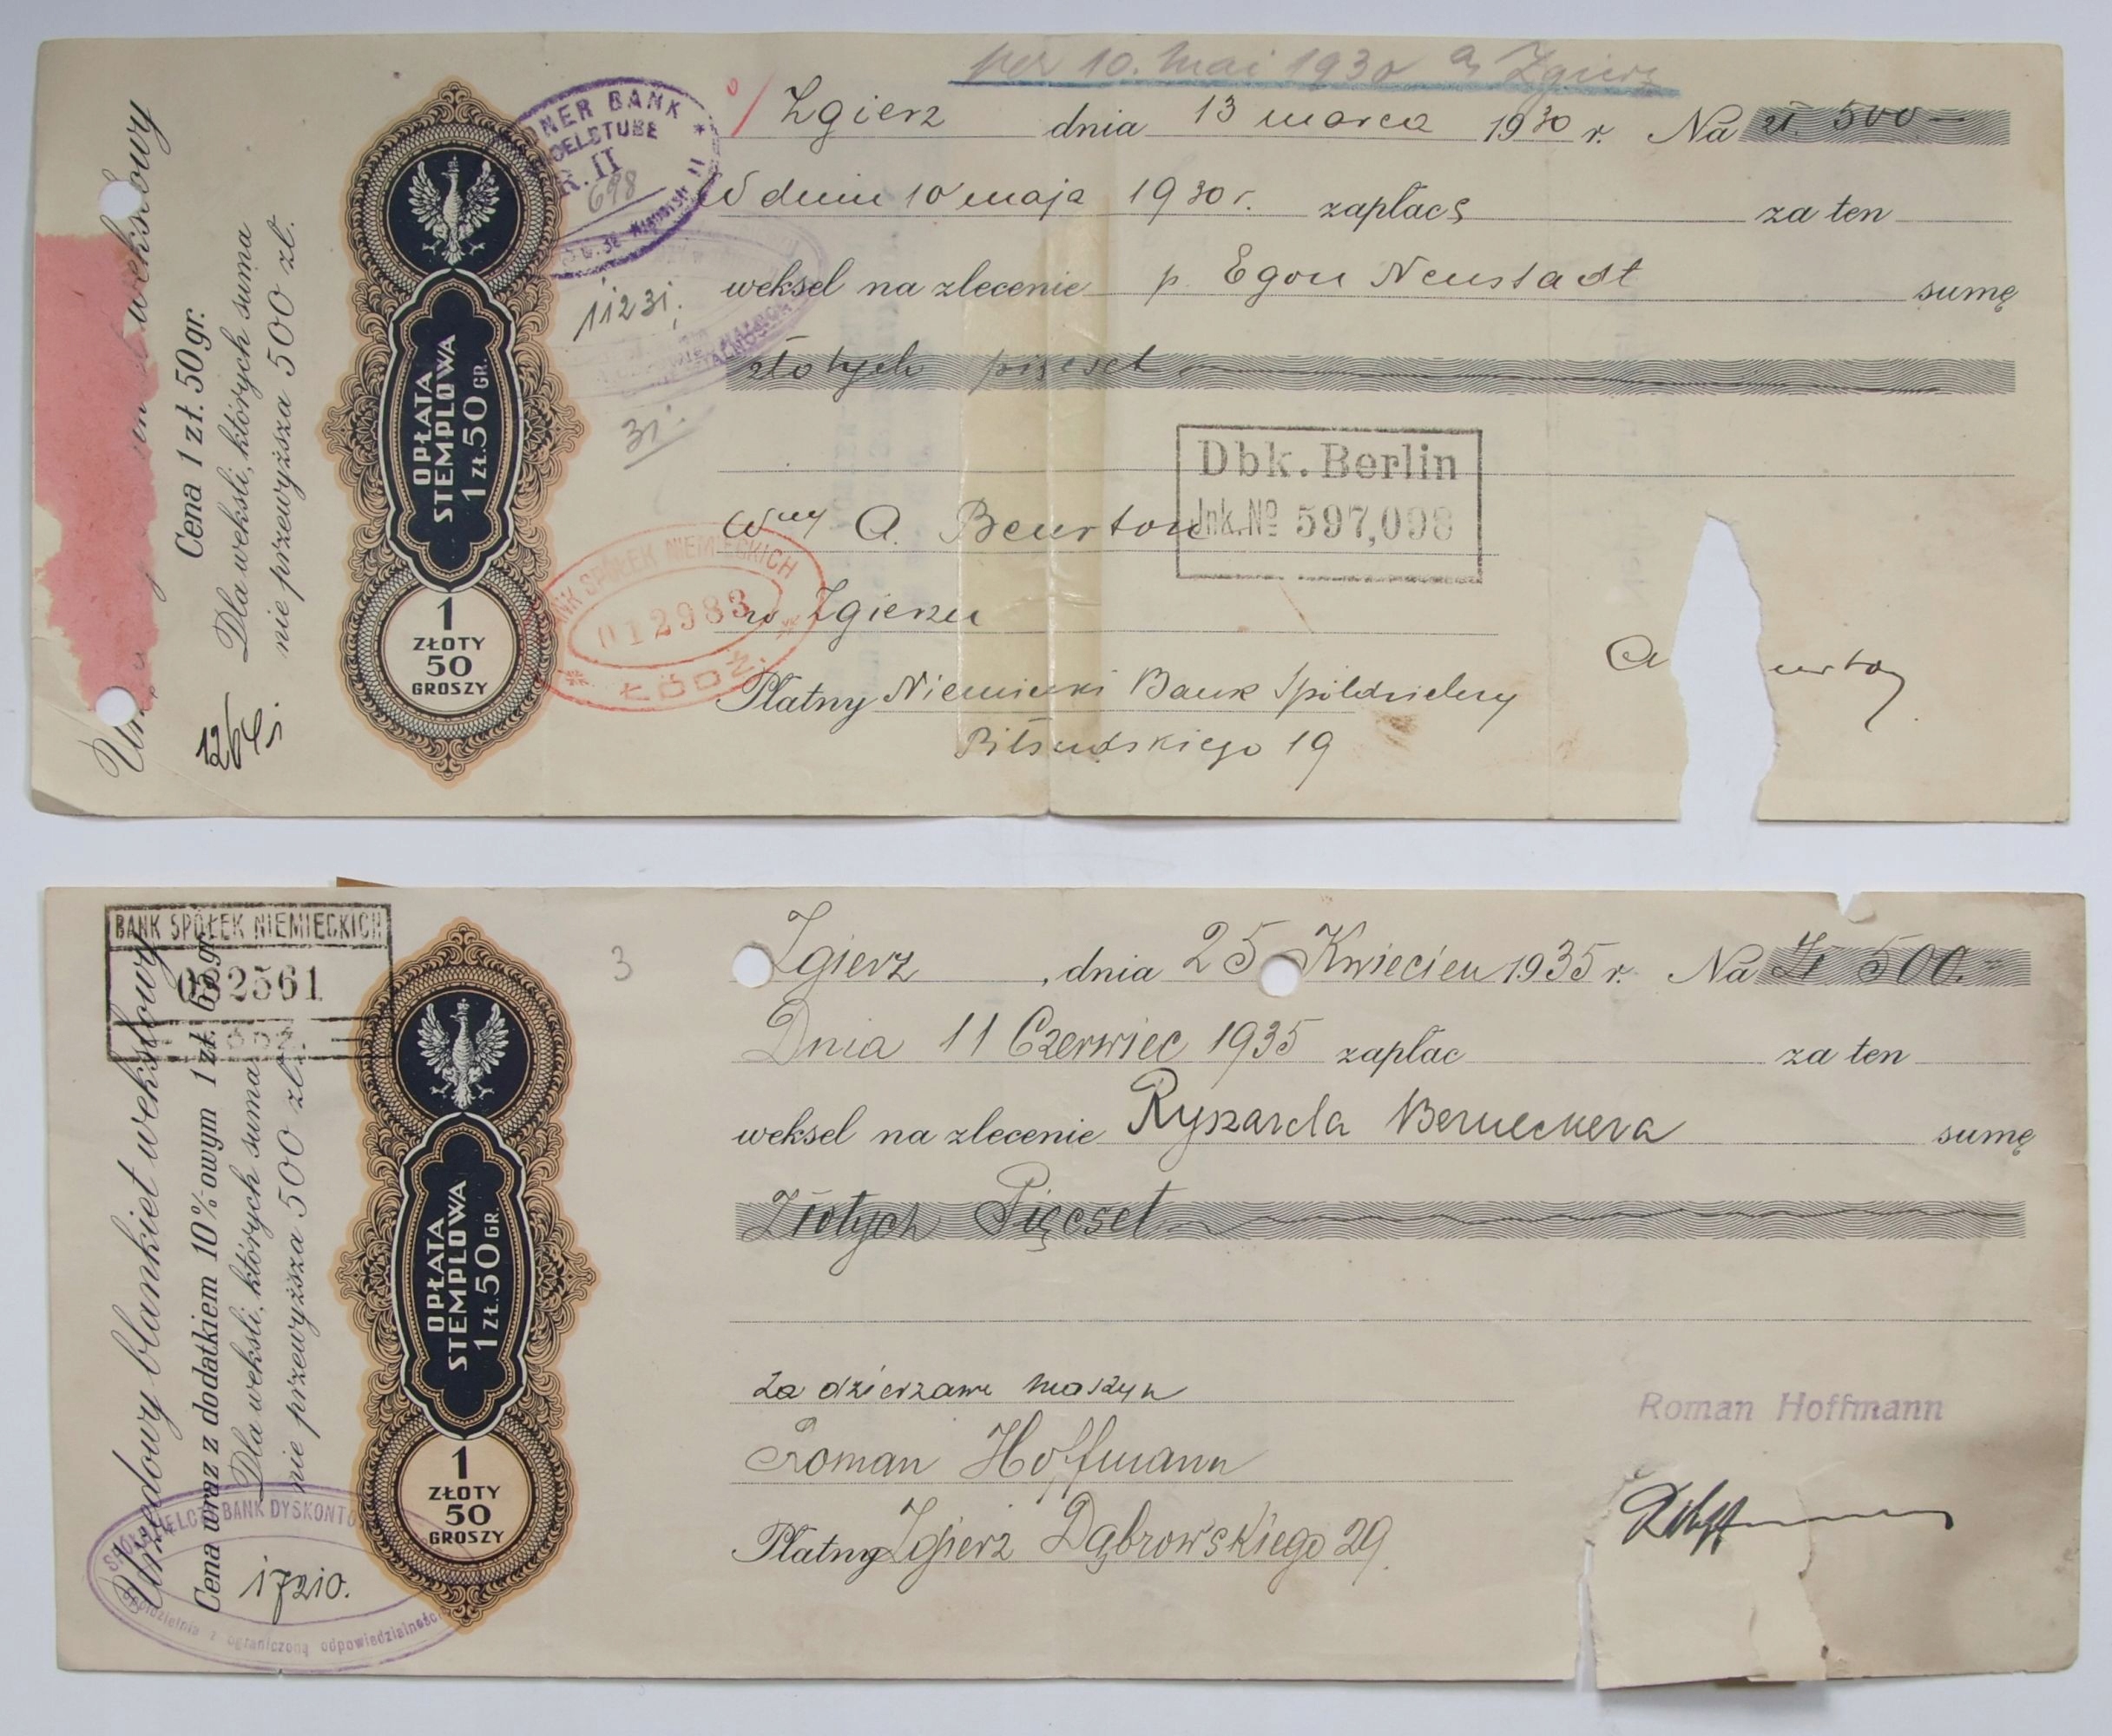 per 10. Mai 1930 a/ Zgierz
Zgierz dnia 13 marca 1930 r. Na zł. 500 —
W dniu 10 maja 1930 r. zapłacę za ten
weksel na zlecenie p. Egon Neustadt sumę
złotych pięset
Wny A. Beurton
w Zgierzu
Płatny Niemiecki Bank Spółdzielczy
Piłsudskiego 19
A urton
Dbk. Berlin
Jnk. No 597,098
BANK SPÓŁEK NIEMIECKICH
012983
ŁÓDŹ
DNER BANK
R. II
698
11231.
31.
wekslowy
Cena 1 zł. 50 gr.
Dla weksli, których suma
nie przewyższa 500 zł.
OPŁATA
STEMPLOWA
1 ZŁ. 50 GR.
1
ZŁOTY
50
GROSZY
BANK SPÓŁEK NIEMIECKICH
032561
3
Zgierz, dnia 25 Kwiecień 1935 r. Na Zł 500.-
Dnia 11 Czerwiec 1935 zapłac za ten
weksel na zlecenie Ryszarda Berneckera sumę
Złotych Pięcset
za dzierzawe maszyn
Roman Hoffmann
Płatny Zgierz Dąbrowskiego 29.
Roman Hoffmann
Urzędowy blankiet wekslowy
Cena wraz z dodatkiem 10%owym 1 zł. 65 gr.
Dla weksli, których suma
nie przewyższa 500 zł.
OPŁATA
STEMPLOWA
1 ZŁ. 50 GR.
1
ZŁOTY
50
GROSZY
BANK DYSKONTO
17210.
spółdzielnia z ograniczoną odpowiedzialnością